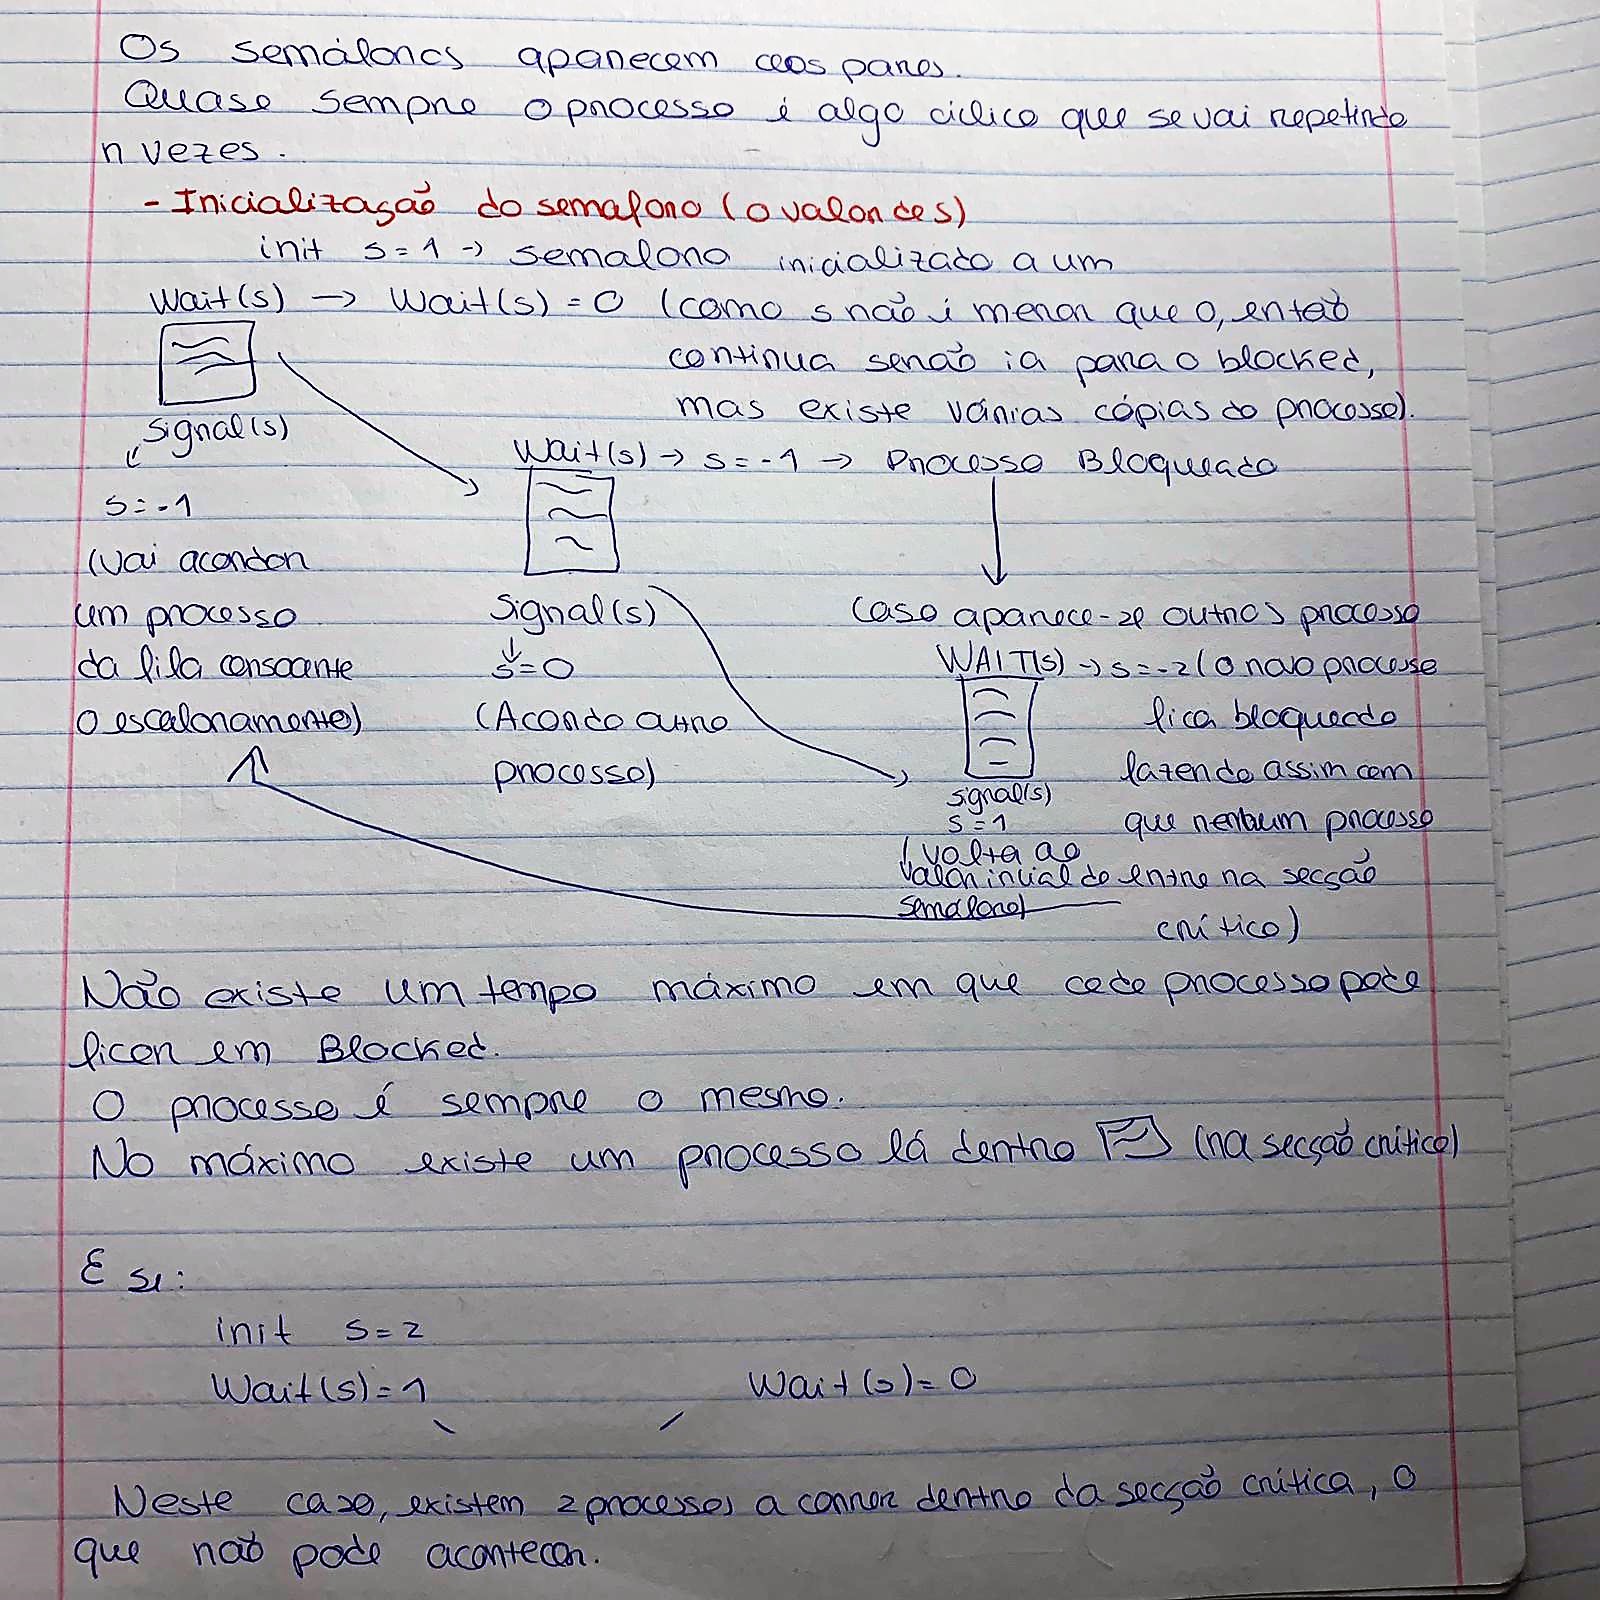 Os semáforos aparecem aos pares.
Quase sempre o processo é algo ciclico que se vai repetindo
n vezes.
- Inicialização do semaforo (o valor de s)
init s=1 -> semaforo inicializado a um
Wait(s) -> Wait(s) = 0 (como s não é menor que 0, então
continua senão ia para o blocked,
mas existe várias cópias do processo).
Signal(s)
Wait(s) -> s=-1 -> Processo Bloqueado
s=-1
(vai acordar
um processo
da fila consoante
o escalonamento)
Signal(s)
s=0
(Acordo outro
processo)
Caso aparece-se outros processo
WAIT(s) -> s=-2 (o novo processo
fica bloqueado
fazendo assim com
que nenhum processo
entre na secção
crítico)
signal(s)
s=1
(volta ao
valor inicial do
semáforo)
Não existe um tempo máximo em que cada processo pode
ficar em Blocked.
O processo é sempre o mesmo.
No máximo existe um processo lá dentro (na secção crítico)
E se:
init s=2
Wait(s)=1 Wait(s)=0
Neste caso, existem 2 processos a correr dentro da secção crítica, o
que não pode acontecer.